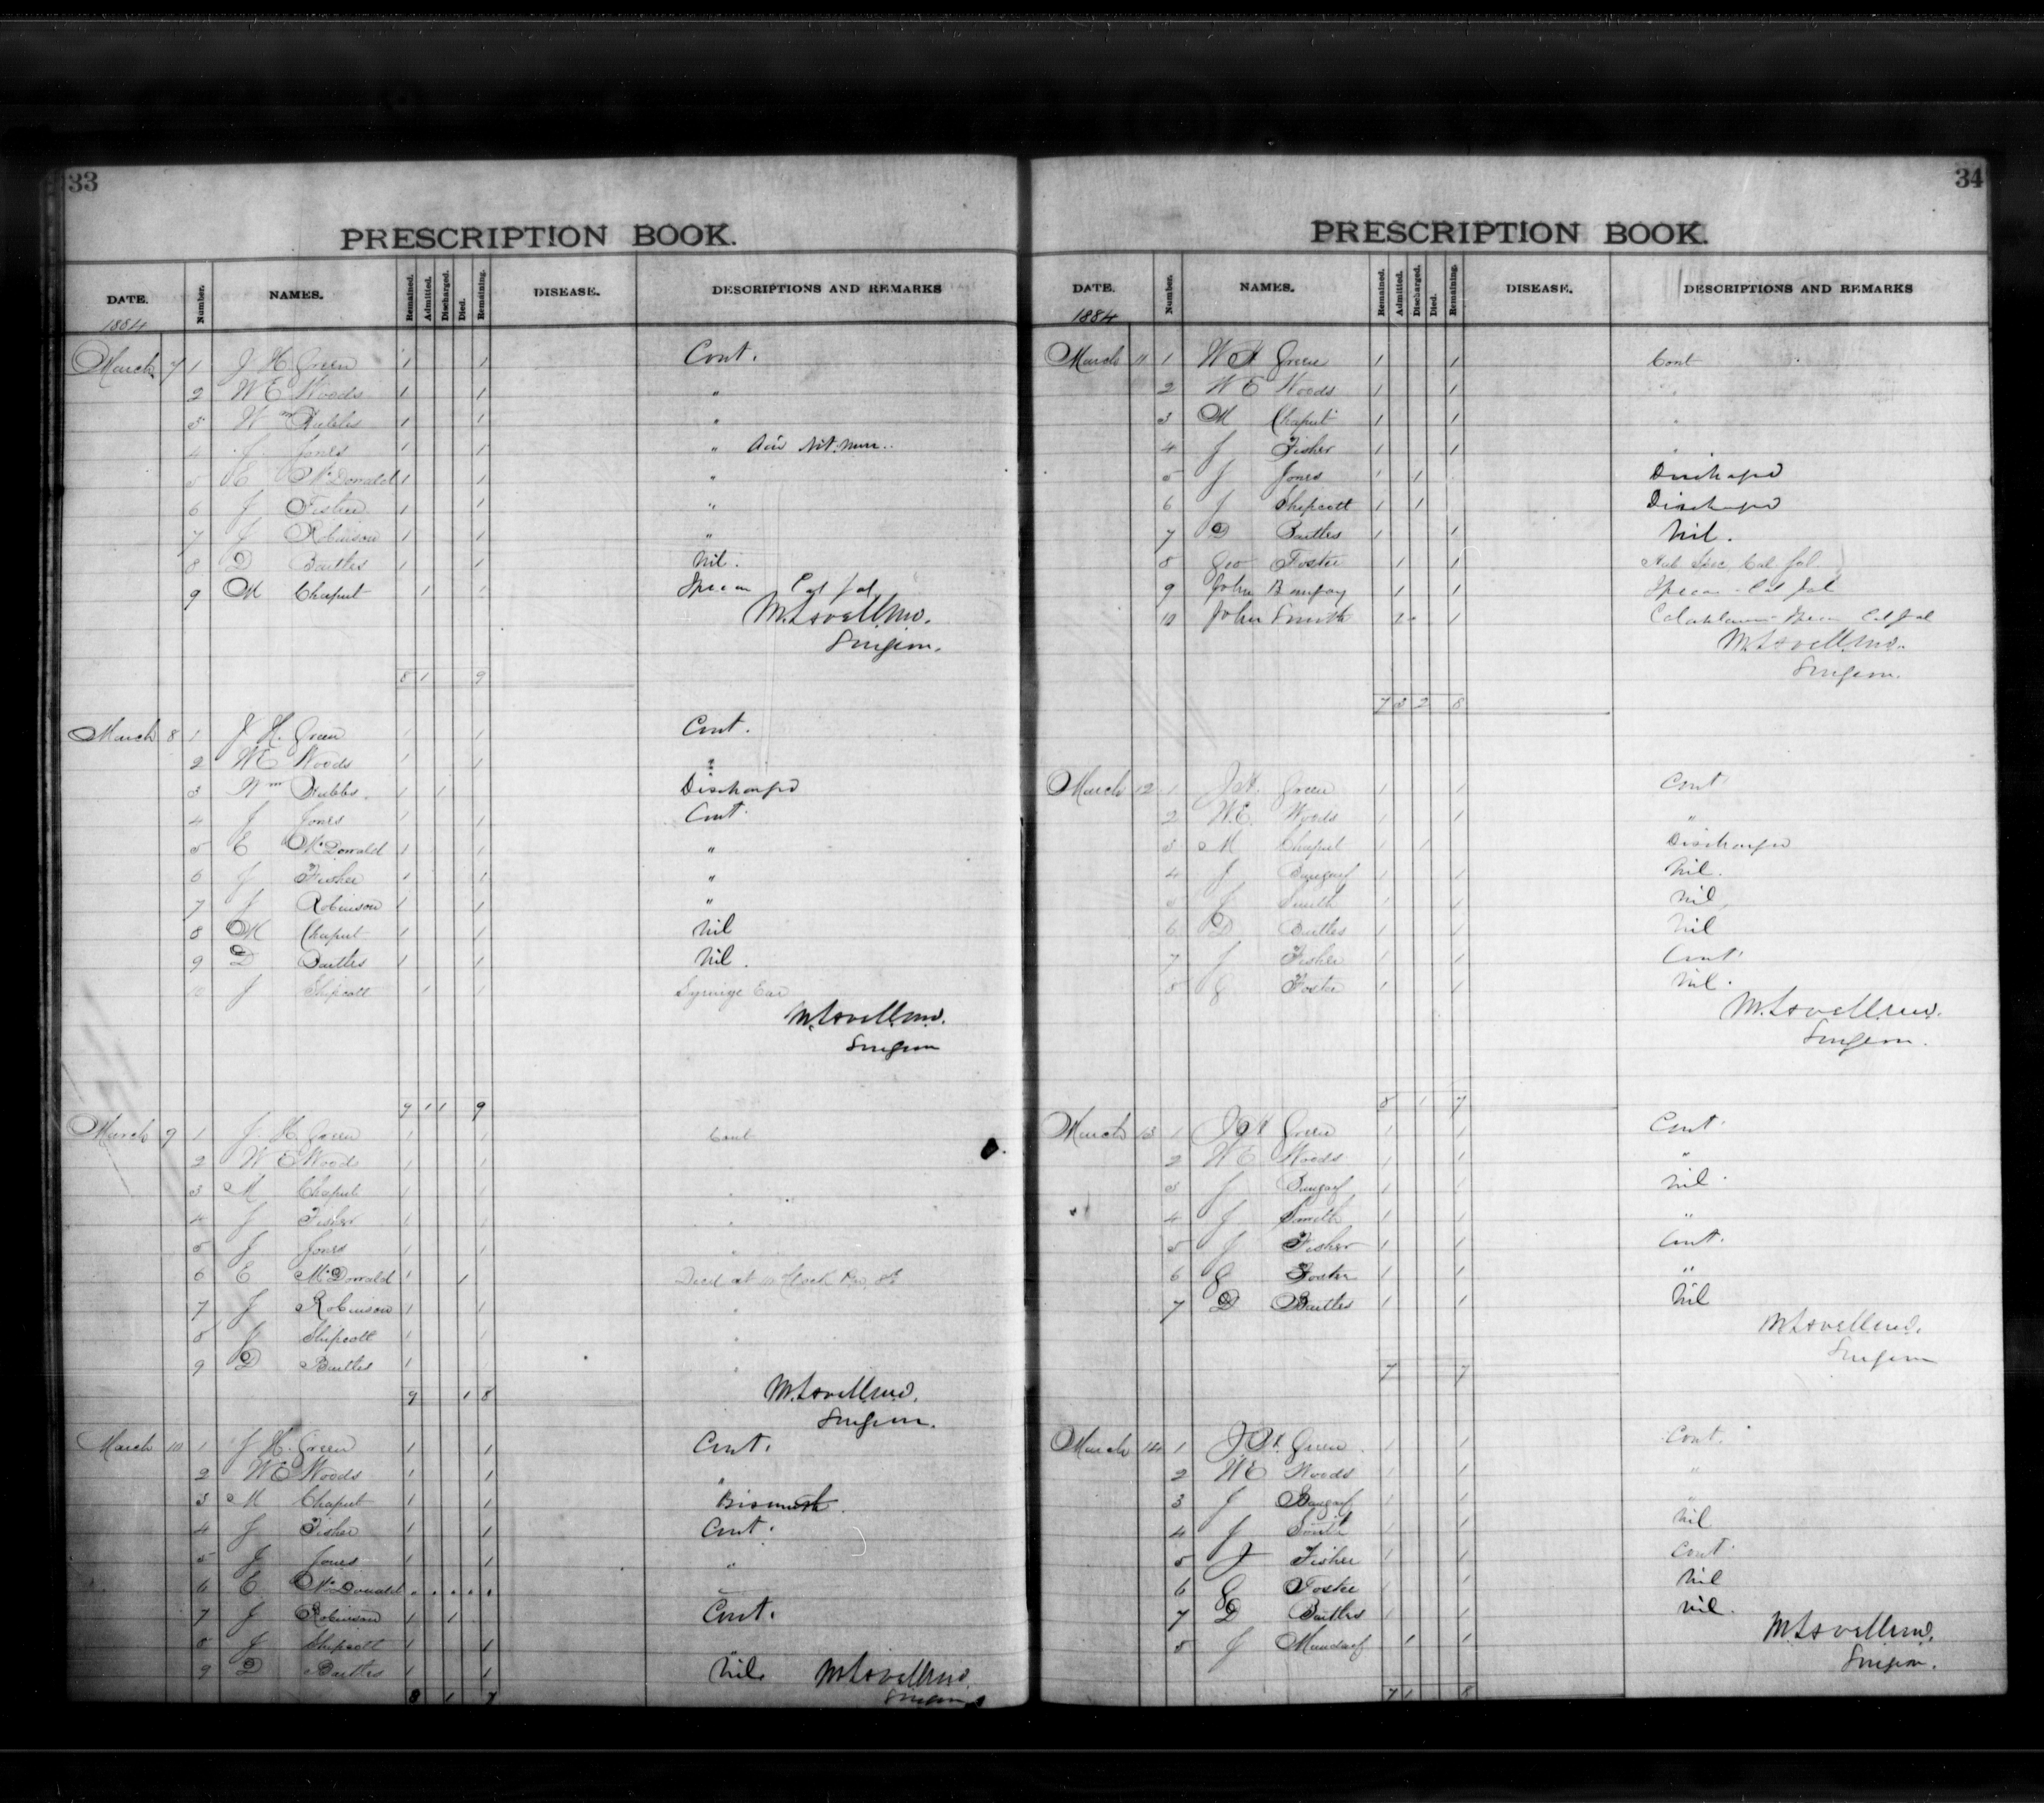 33
PRESCRIPTION BOOK.
DATE. Number. NAMES. Remained. Admitted. Discharged. Died. Remaining. DISEASE. DESCRIPTIONS AND REMARKS
1884
March 7 1 J H Green 1 1 Cont.
2 W E Woods 1 1 "
3 Wm Hubbs 1 1 "
4 J Jones 1 1 " Acid Nit. Mur.
5 E McDonald 1 1 "
6 J Fisher 1 1 "
7 J Robinson 1 1 "
8 D Bartles 1 1 Nil.
9 M Chaput 1 1 Ipecac
M. Lavell MD.
Surgeon.
8 1 9
March 8 1 J H. Green 1 1 Cont.
2 W E Woods 1 1 "
3 Wm Hubbs 1 1 Discharged
4 J Jones 1 1 Cont.
5 E McDonald 1 1 "
6 J Fisher 1 1 "
7 J Robinson 1 1 "
8 M Chaput 1 1 Nil
9 D Bartles 1 1 Nil.
10 J Shipcott 1 1 Syringe Ear
M. Lavell MD.
Surgeon
9 1 1 9
March 9 1 J. H. Green 1 1 Cont
2 W E Wood 1 1 "
3 M Chaput 1 1 "
4 J Fisher 1 1 "
5 J Jones 1 1 "
6 E McDonald 1 1 Died at
7 J Robinson 1 1 "
8 J Shipcott 1 1 "
9 D Bartles 1 1 "
9 1 8
M. Lavell MD.
Surgeon.
March 10 1 J H. Green 1 1 Cont.
2 W E Woods 1 1 "
3 M Chaput 1 1 Bismuth.
4 J Fisher 1 1 Cont.
5 J Jones 1 1 "
6 E McDonald . . . . .
7 J Robinson 1 1 Cont.
8 J Shipcott 1 1
9 D Bartles 1 1 Nil. M. Lavell MD.
Surgeon
8 1 7
34
PRESCRIPTION BOOK.
DATE. Number. NAMES. Remained. Admitted. Discharged. Died. Remaining. DISEASE. DESCRIPTIONS AND REMARKS
1884
March 11 1 W H Green 1 1 Cont
2 W E Woods 1 1 "
3 M Chaput 1 1 "
4 J Fisher 1 1 "
5 J Jones 1 1 Discharged
6 J Shipcott 1 1 Discharged
7 D Bartles 1 1 Nil.
8 Geo Foster 1 1
9 John 1 1 Ipecac
10 John Smith 1 1
M. Lavell MD.
Surgeon.
7 3 2 8
March 12 1 J H. Green 1 1 Cont
2 W. E. Woods 1 1 "
3 M Chaput 1 1 Discharged
4 J 1 1 Nil.
5 J Smith 1 1 Nil
6 D Bartles 1 1 Nil
7 J Fisher 1 1 Cont.
8 G Foster 1 1 Nil.
M. Lavell MD.
Surgeon.
8 1 7
March 13 1 J H Green 1 1 Cont.
2 W E Woods 1 1 "
3 J 1 1 Nil.
4 J Smith 1 1 "
5 J Fisher 1 1 Cont.
6 G Foster 1 1 "
7 D Bartles 1 1 Nil
M. Lavell MD.
Surgeon
7 7
March 14 1 J. H. Green 1 1 Cont.
2 W E Woods 1 1 "
3 J 1 1 "
4 J Smith 1 1 Nil
5 J Fisher 1 1 Cont.
6 G Foster 1 1 Nil
7 D Bartles 1 1 Nil.
8 J 1 1
M. Lavell MD.
Surgeon.
7 1 8